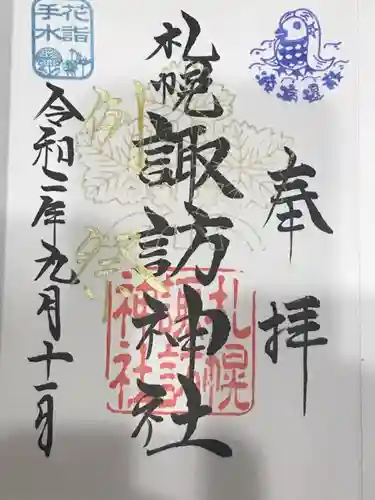 奉拝
札幌諏訪神社
札幌諏訪神社
例祭
令和二年九月十一日
花詣
手水